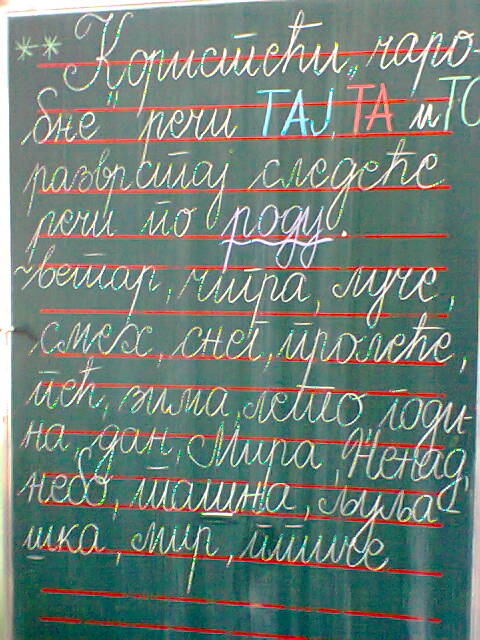 ** Користећи „чаро-
бне" речи ТАЈ, ТА и ТО
разврстај следеће
речи по роду.
-ветар, чигра, луче,
смех, снег, пролеће,
пећ, зима, лето, годи-
на, дан, Мира, Ненад,
небо, ташна, љуља
шка, мир, птиче